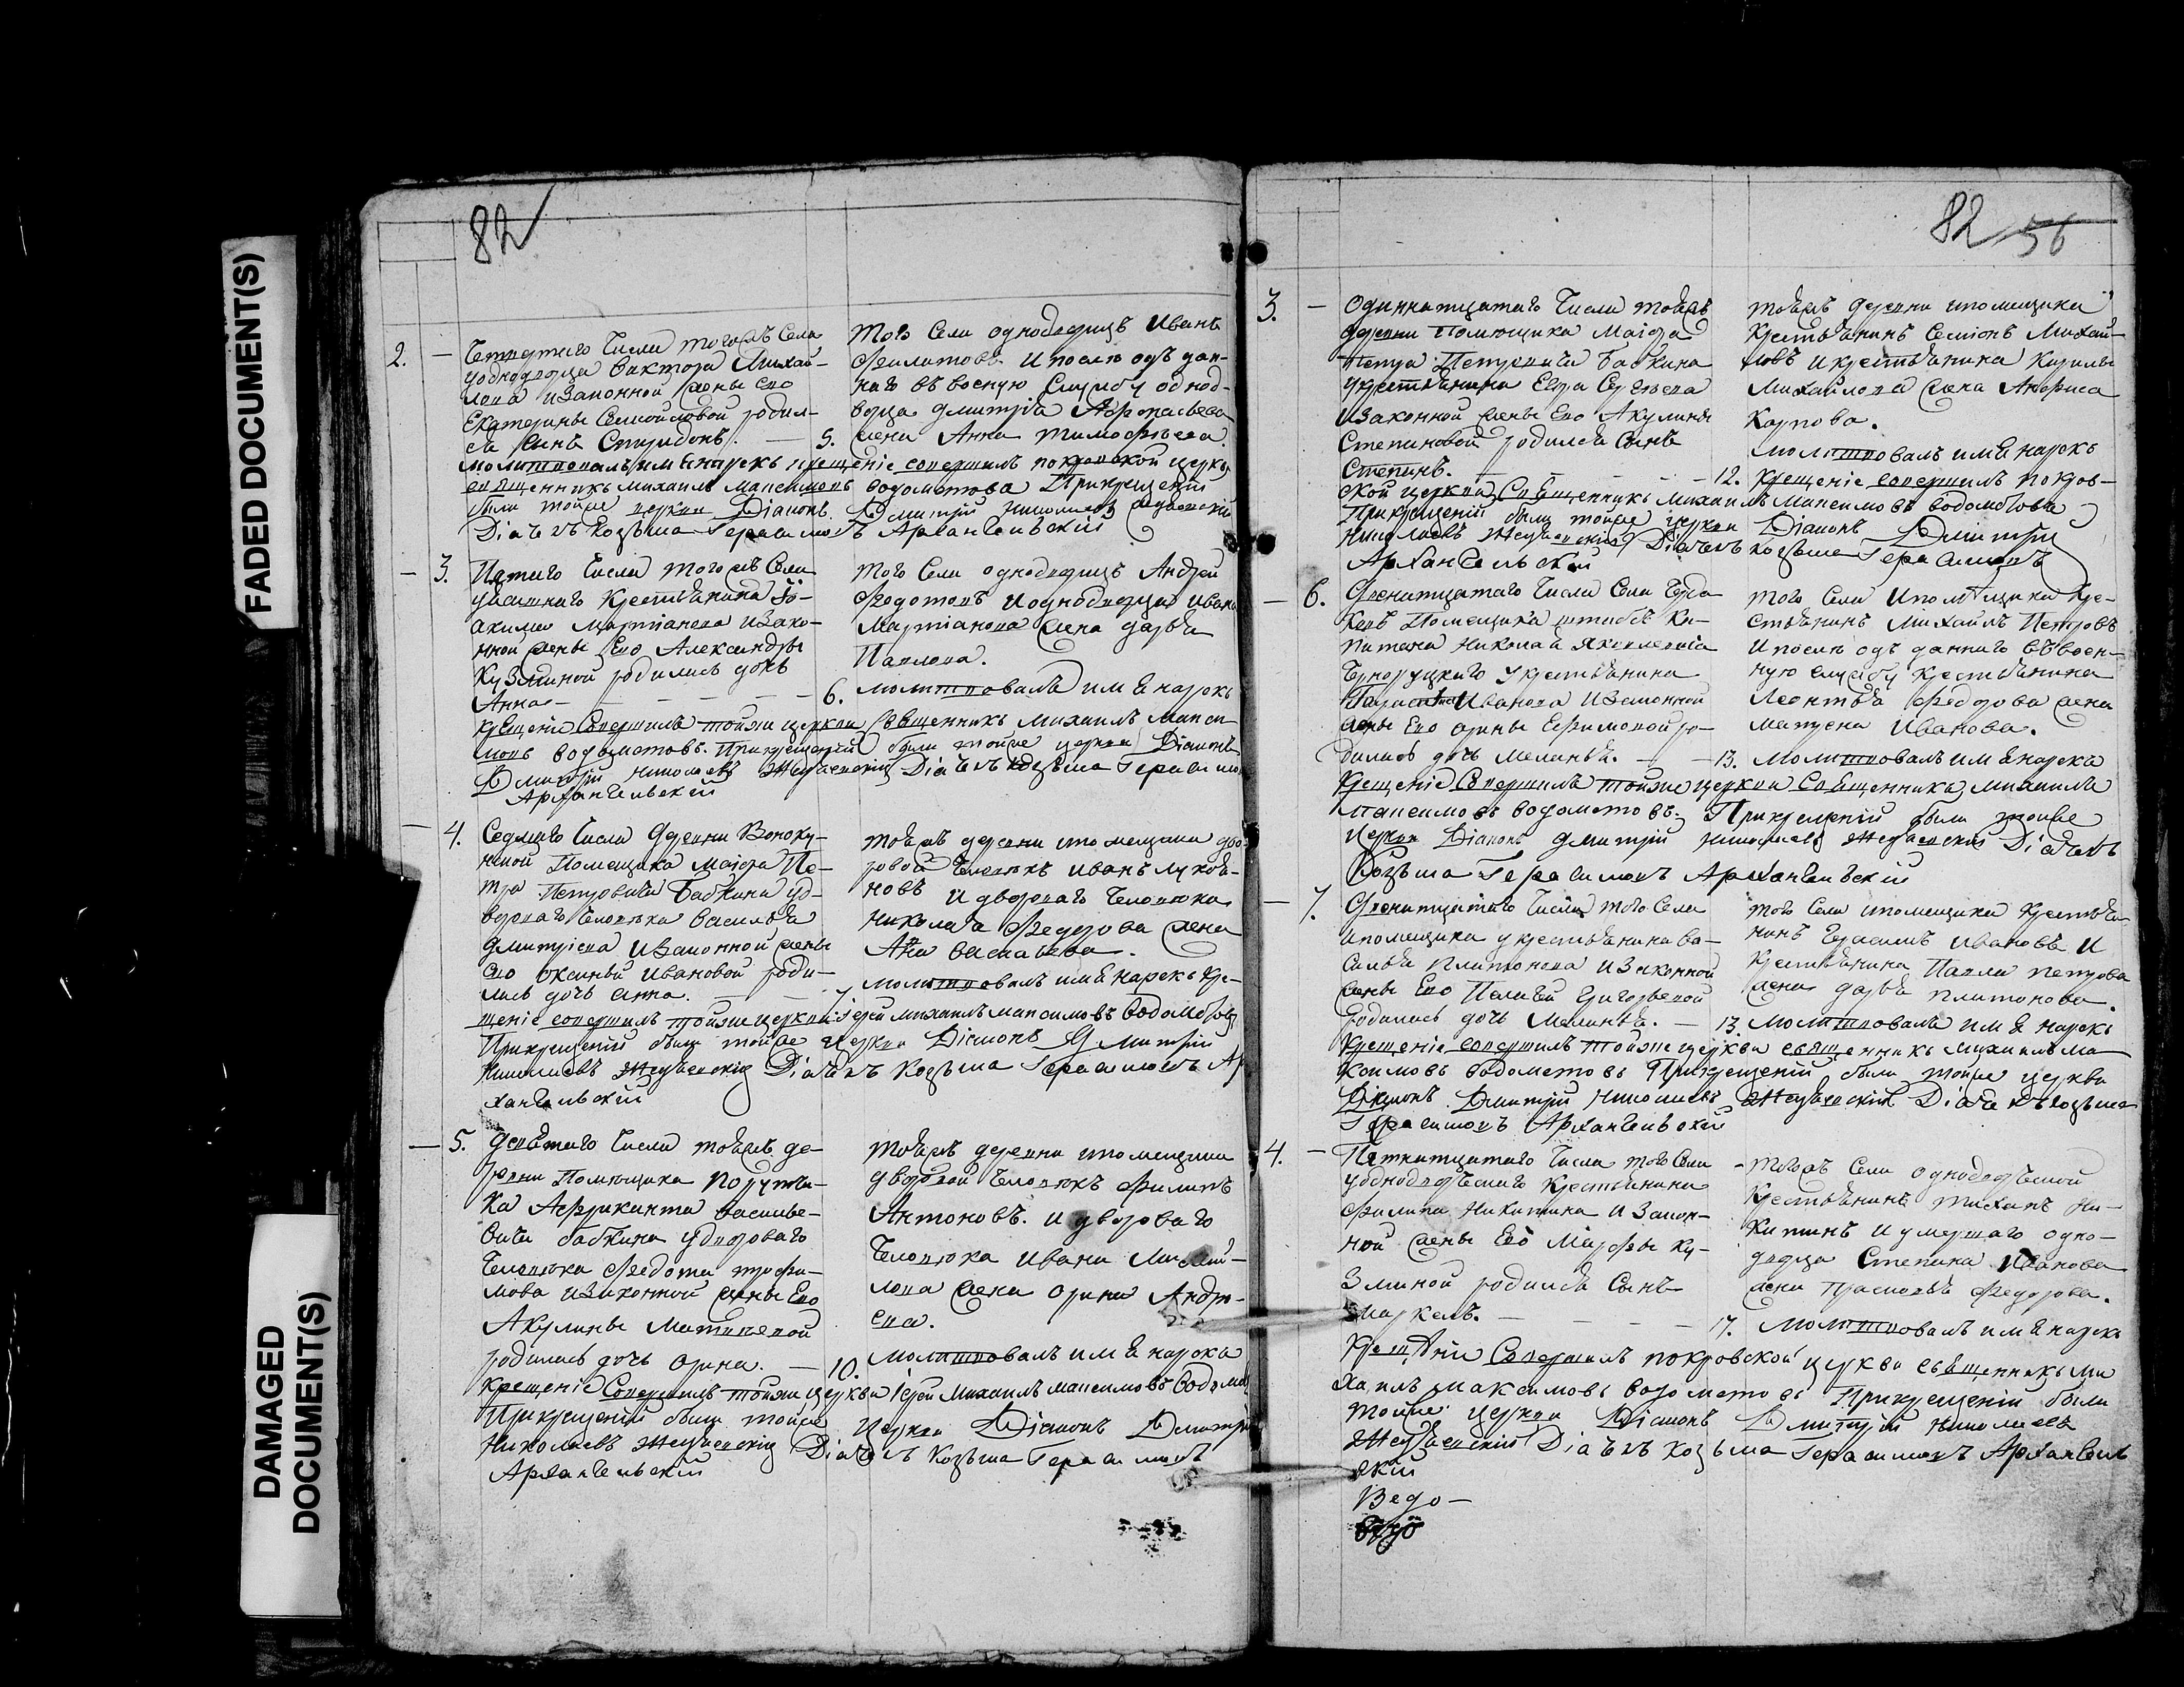 FADED DOCUMENT(S)
DAMAGED
DOCUMENT(S)
82
2. — Четвертаго Числа тогожъ Села
уоднодворца Виктора Михай-
лова изаконной жены Его
Екатерины Самойловой родил-
ся сынъ Спиридонъ. — 5.
Того Села однодворецъ Иванъ
Филатовъ. И послѣ одъдан-
наго въ воєную Службу однод-
ворца дмитрія Афонасьева
жена Анна Тимофѣева.
молитвовалъ имя нарекъ крещеніе совершилъ покровской церкв
священникъ михаилъ максимовъ водометова Прикрещеніи
были тойже церкви Діаконъ Дмитрій николаевъ
Діачекъ Козьма Герасимовъ Архангельскій
— 3. Пятаго Числа того жъ Села
Крестьянина Іо-
акима Мартіанова изако-
нной жены Его Александры
Кузминой родилась дочь
Анна — — — — 6.
того Села однодворецъ Андрей
Федотовъ и однодворца ивана
Мартіанова жена дарья
Павлова.
молитвовалъ имя нарекъ
крещеніе Совершилъ тойжи церкви Священникъ михаилъ макси
мовъ водометовъ. Прикрещеніи были тойже церкви Діаконъ
Дмитрій николаевъ Діачекъ козьма Герасимо
Архангельскій
— 4. Седмаго Числа деревни
Помещика Маіора Пе-
тра Петровича Бабкина уд-
вороваго Человека василья
дмитріева изаконной жены
его оксиньи ивановой роди-
лась дочь анна. — — 7
тояжъ деревни ипомещика дво-
ровой Человекъ иванъ
новъ и двороваго Человека
николая Федорова жена
Ана васильева.
молитвовалъ имя нарекъ кре-
щеніе совершилъ тойжи церкви іерей михаилъ максимовъ водометовъ
Прикрещеніи были тойже церкви Діаконъ Дмитрій
николаевъ Діачекъ Козьма Герасимовъ Ар
хангельскій
— 5. девятаго Числа тояжъ де-
ревни Помещика Поручи-
ка Африканта василье-
вича бабкина удвороваго
Человека Федота трофи-
мова изаконной жены Его
Акулины Матвеевой
родилась дочь орина. — 10.
тояжъ деревни ипомещика
дворовой Человекъ Филипъ
Антоновъ. и двороваго
Человека ивана Михай-
лова жена орина Андре-
ева.
молитвовалъ имя нарекъ
Крещеніе Совершилъ тойжи церкви іерей михаилъ максимовъ Водоме
Прикрещеніи были тойже церкви Діаконъ Дмитрій
Николаевъ Діачекъ Козьма Герасимовъ
Архангельскій
82 56
3. — Одиннатцатаго Числа тояжъ
деревни Помещика Маіора
Петра Петровича бабкина
укрестьянина Егора Сергѣева
изаконной жены Его Акулины
Степановой родился сынъ
Степанъ. — — — 12.
тояжъ деревни ипомещика
Крестьянинъ Семіонъ Михай-
ловъ и крестьянина Кирилы
Михайлова жена Анфиса
Карпова.
молитвовалъ имя нарекъ
Крещеніе совершилъ покров-
ской церкви Священникъ михаилъ максимовъ водометовъ
Прикрещеніи были тойже церкви Діаконъ Дмитрій
николаевъ Діачекъ козьма Герасимовъ
Архангельскій
— 6. Двенатцатаго Числа Села
Помещика штабсъ Ка-
питана Николая Яковлевича
укрестьянина
Иванова изаконной
жены Его орины Ефимовой ро-
дилась дочь меланья. — — 13.
того Села ипомещика кре-
стьянинъ михаилъ Петровъ
и послѣ одъданнаго въ воен-
ную службу крестьянина
Леонтья Федорова жена
матрена Иванова.
молитвовалъ имя нарекъ
Крещеніе Совершилъ тойжи церкви Священникъ михаилъ
максимовъ водометовъ. Прикрещеніи были тойже
церкви Діаконъ дмитрій николаевъ Діачекъ
Козьма Герасимовъ Архангельскій
— 7. Двенатцатаго Числа того Села
ипомещика укрестьянина ва-
силья платонова изаконной
жены Его Пелагеи Григорьевой
родилась дочь Меланья. — 13.
того Села ипомещика крестья-
нинъ Герасимъ ивановъ и
крестьянина Павла петрова
жена дарья платонова.
молитвовалъ имя нарекъ
Крещеніе совершилъ тойжи церкви священникъ михаилъ ма
ксимовъ водометовъ Прикрещеніи были тойже церкви
Діаконъ Дмитрій николаевъ Діачекъ козьма
Герасимовъ Архангельскій
4. — Пятнатцатаго Числа того Села
уоднодворческаго Крестьянина
Филипа Никитина изакон-
ной жены Его Марфы Ку-
зминой родился Сынъ
Маркелъ. — — — — 17.
тогожъ Села однодворческой
Крестьянинъ Ни-
китинъ и умершаго одно-
дворца Степана Иванова
жена Прасковья Федорова.
молитвовалъ имя нарекъ
Крещеніи Совершилъ покровской церкви священникъ ми
хаилъ максимовъ водометовъ Прикрещеніи были
тойже церкви Діаконъ Дмитрій николаевъ
Діачекъ козьма Герасимовъ Архангель
скій
Ведо—